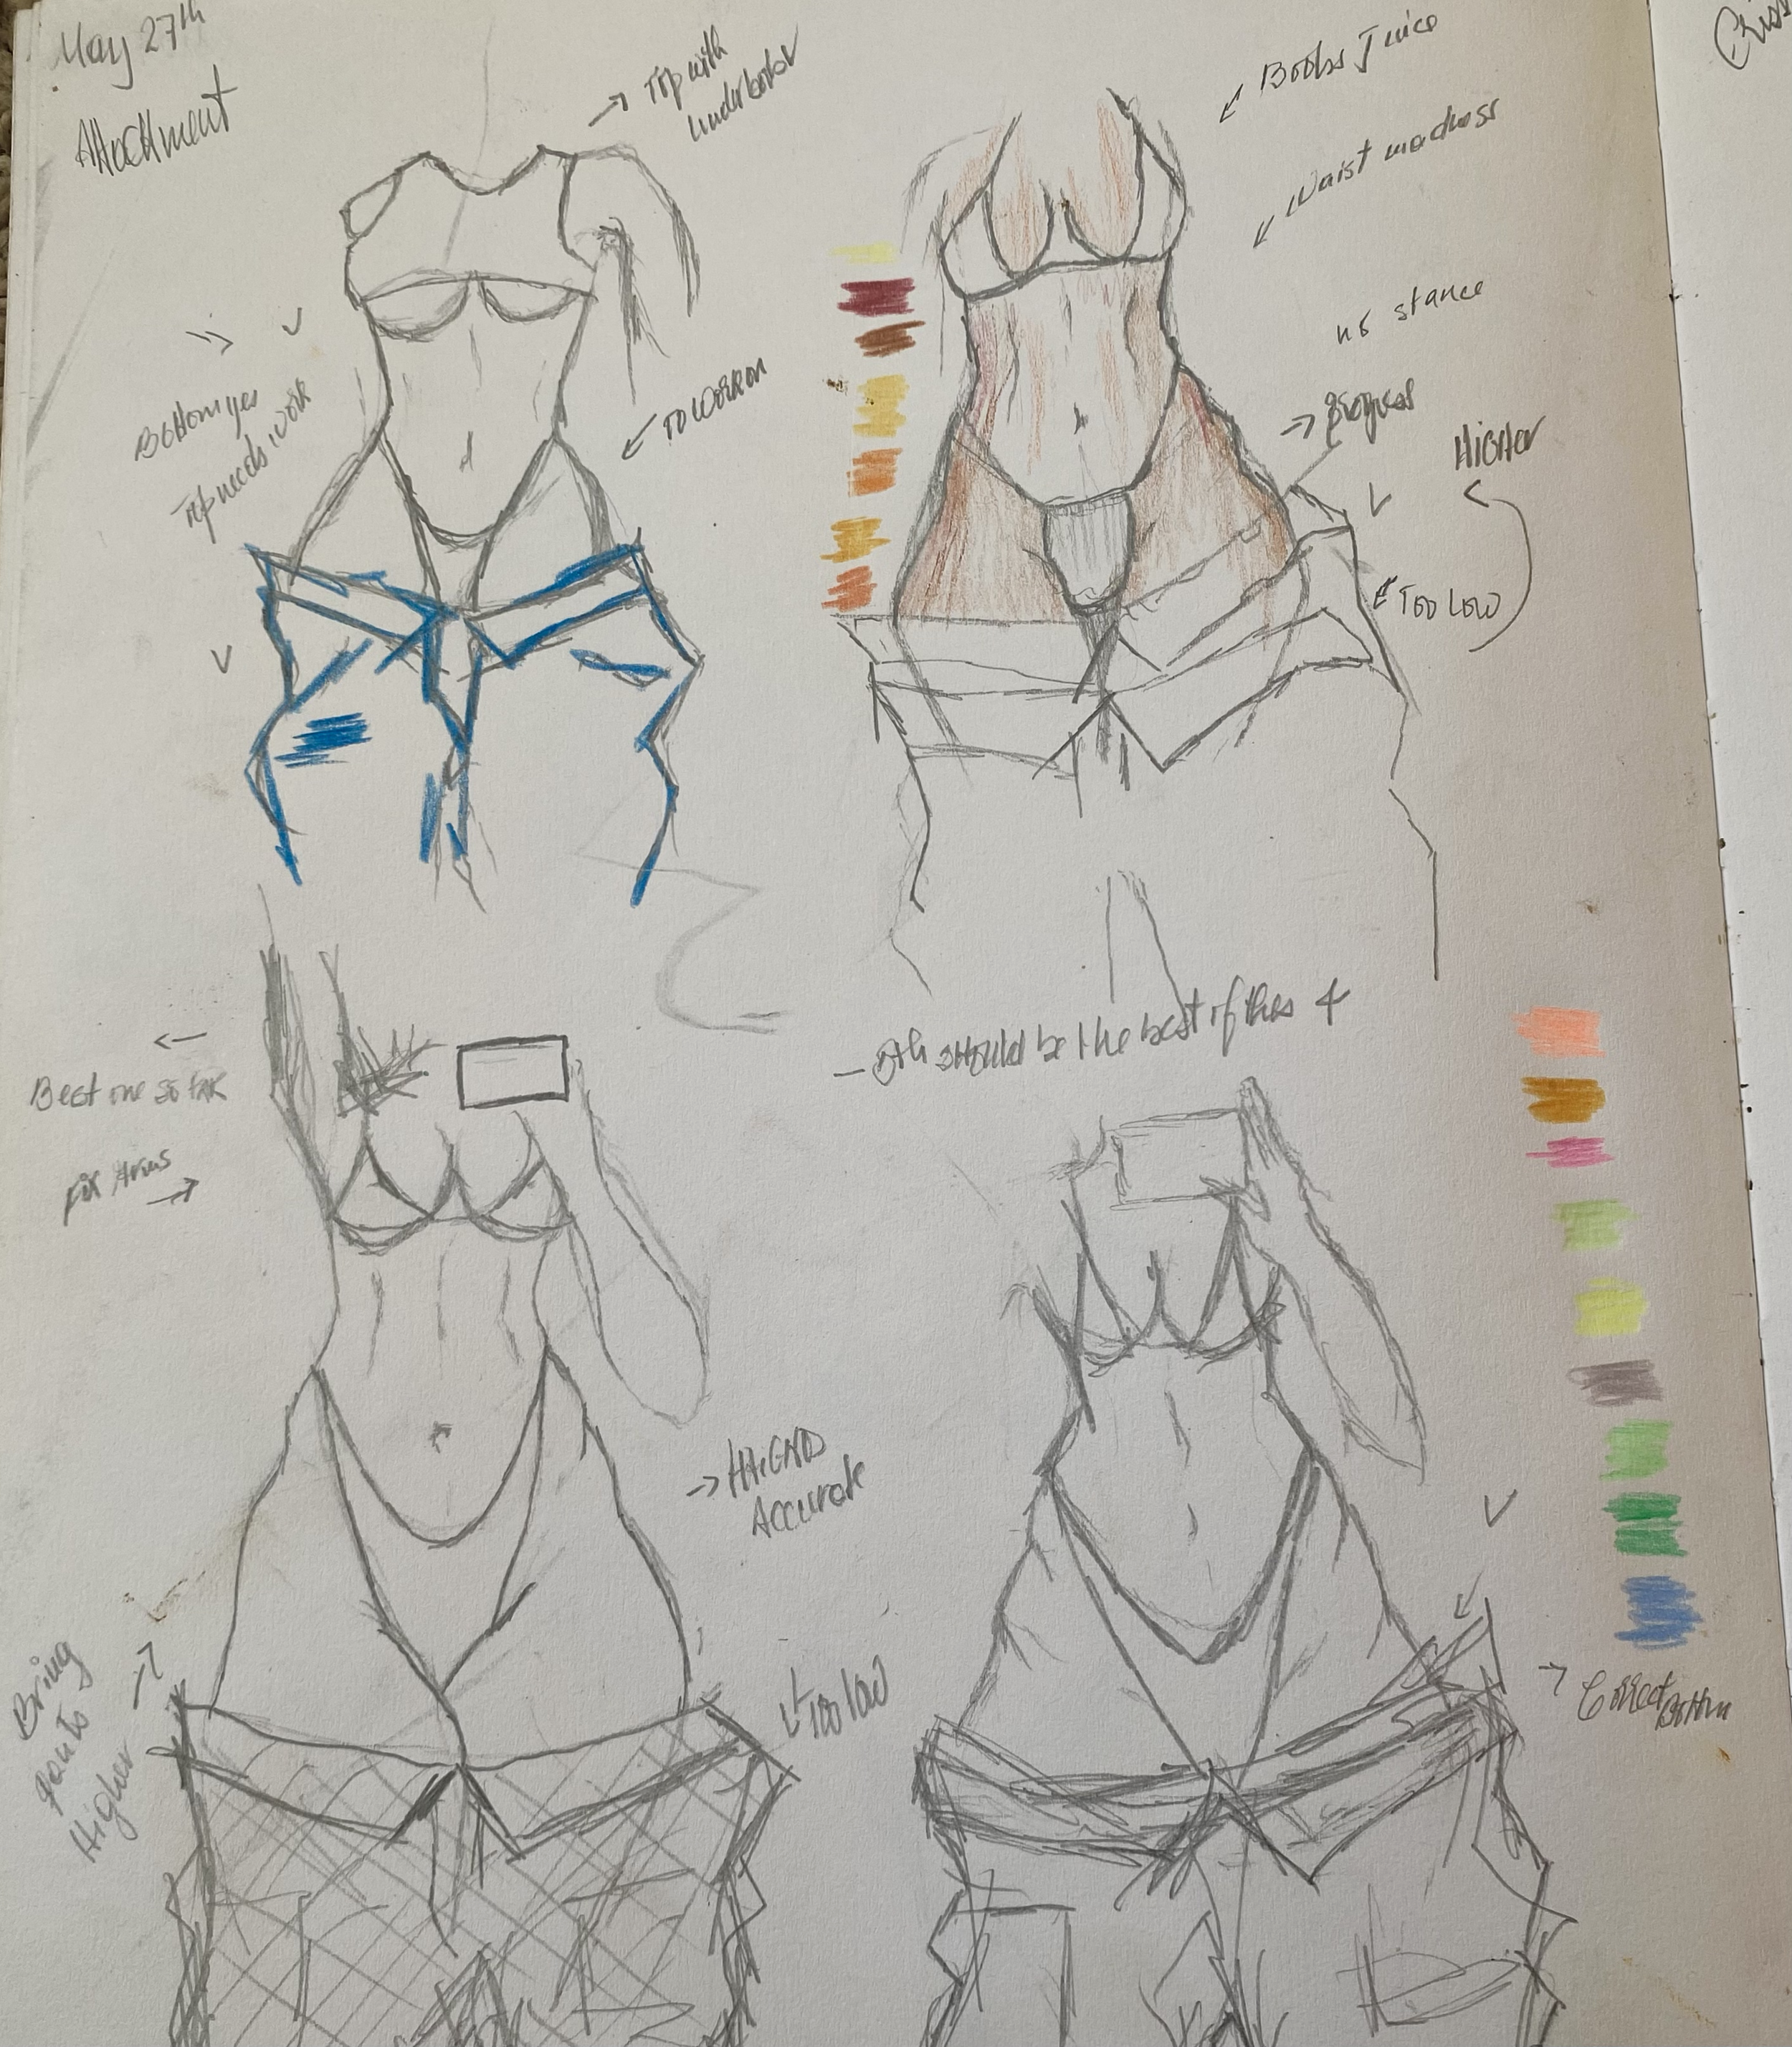 May 27th
Attachment
Top with
underboob
Boobs Juice
Waist madness
no stance
Progress
Higher
Too Low
Bottom yes
Top needs work
To work on
Best one so far
Fix Arms
5th should be the best of this 4
Accurate
Too low
Bring
pants
Higher
Correct Bottom